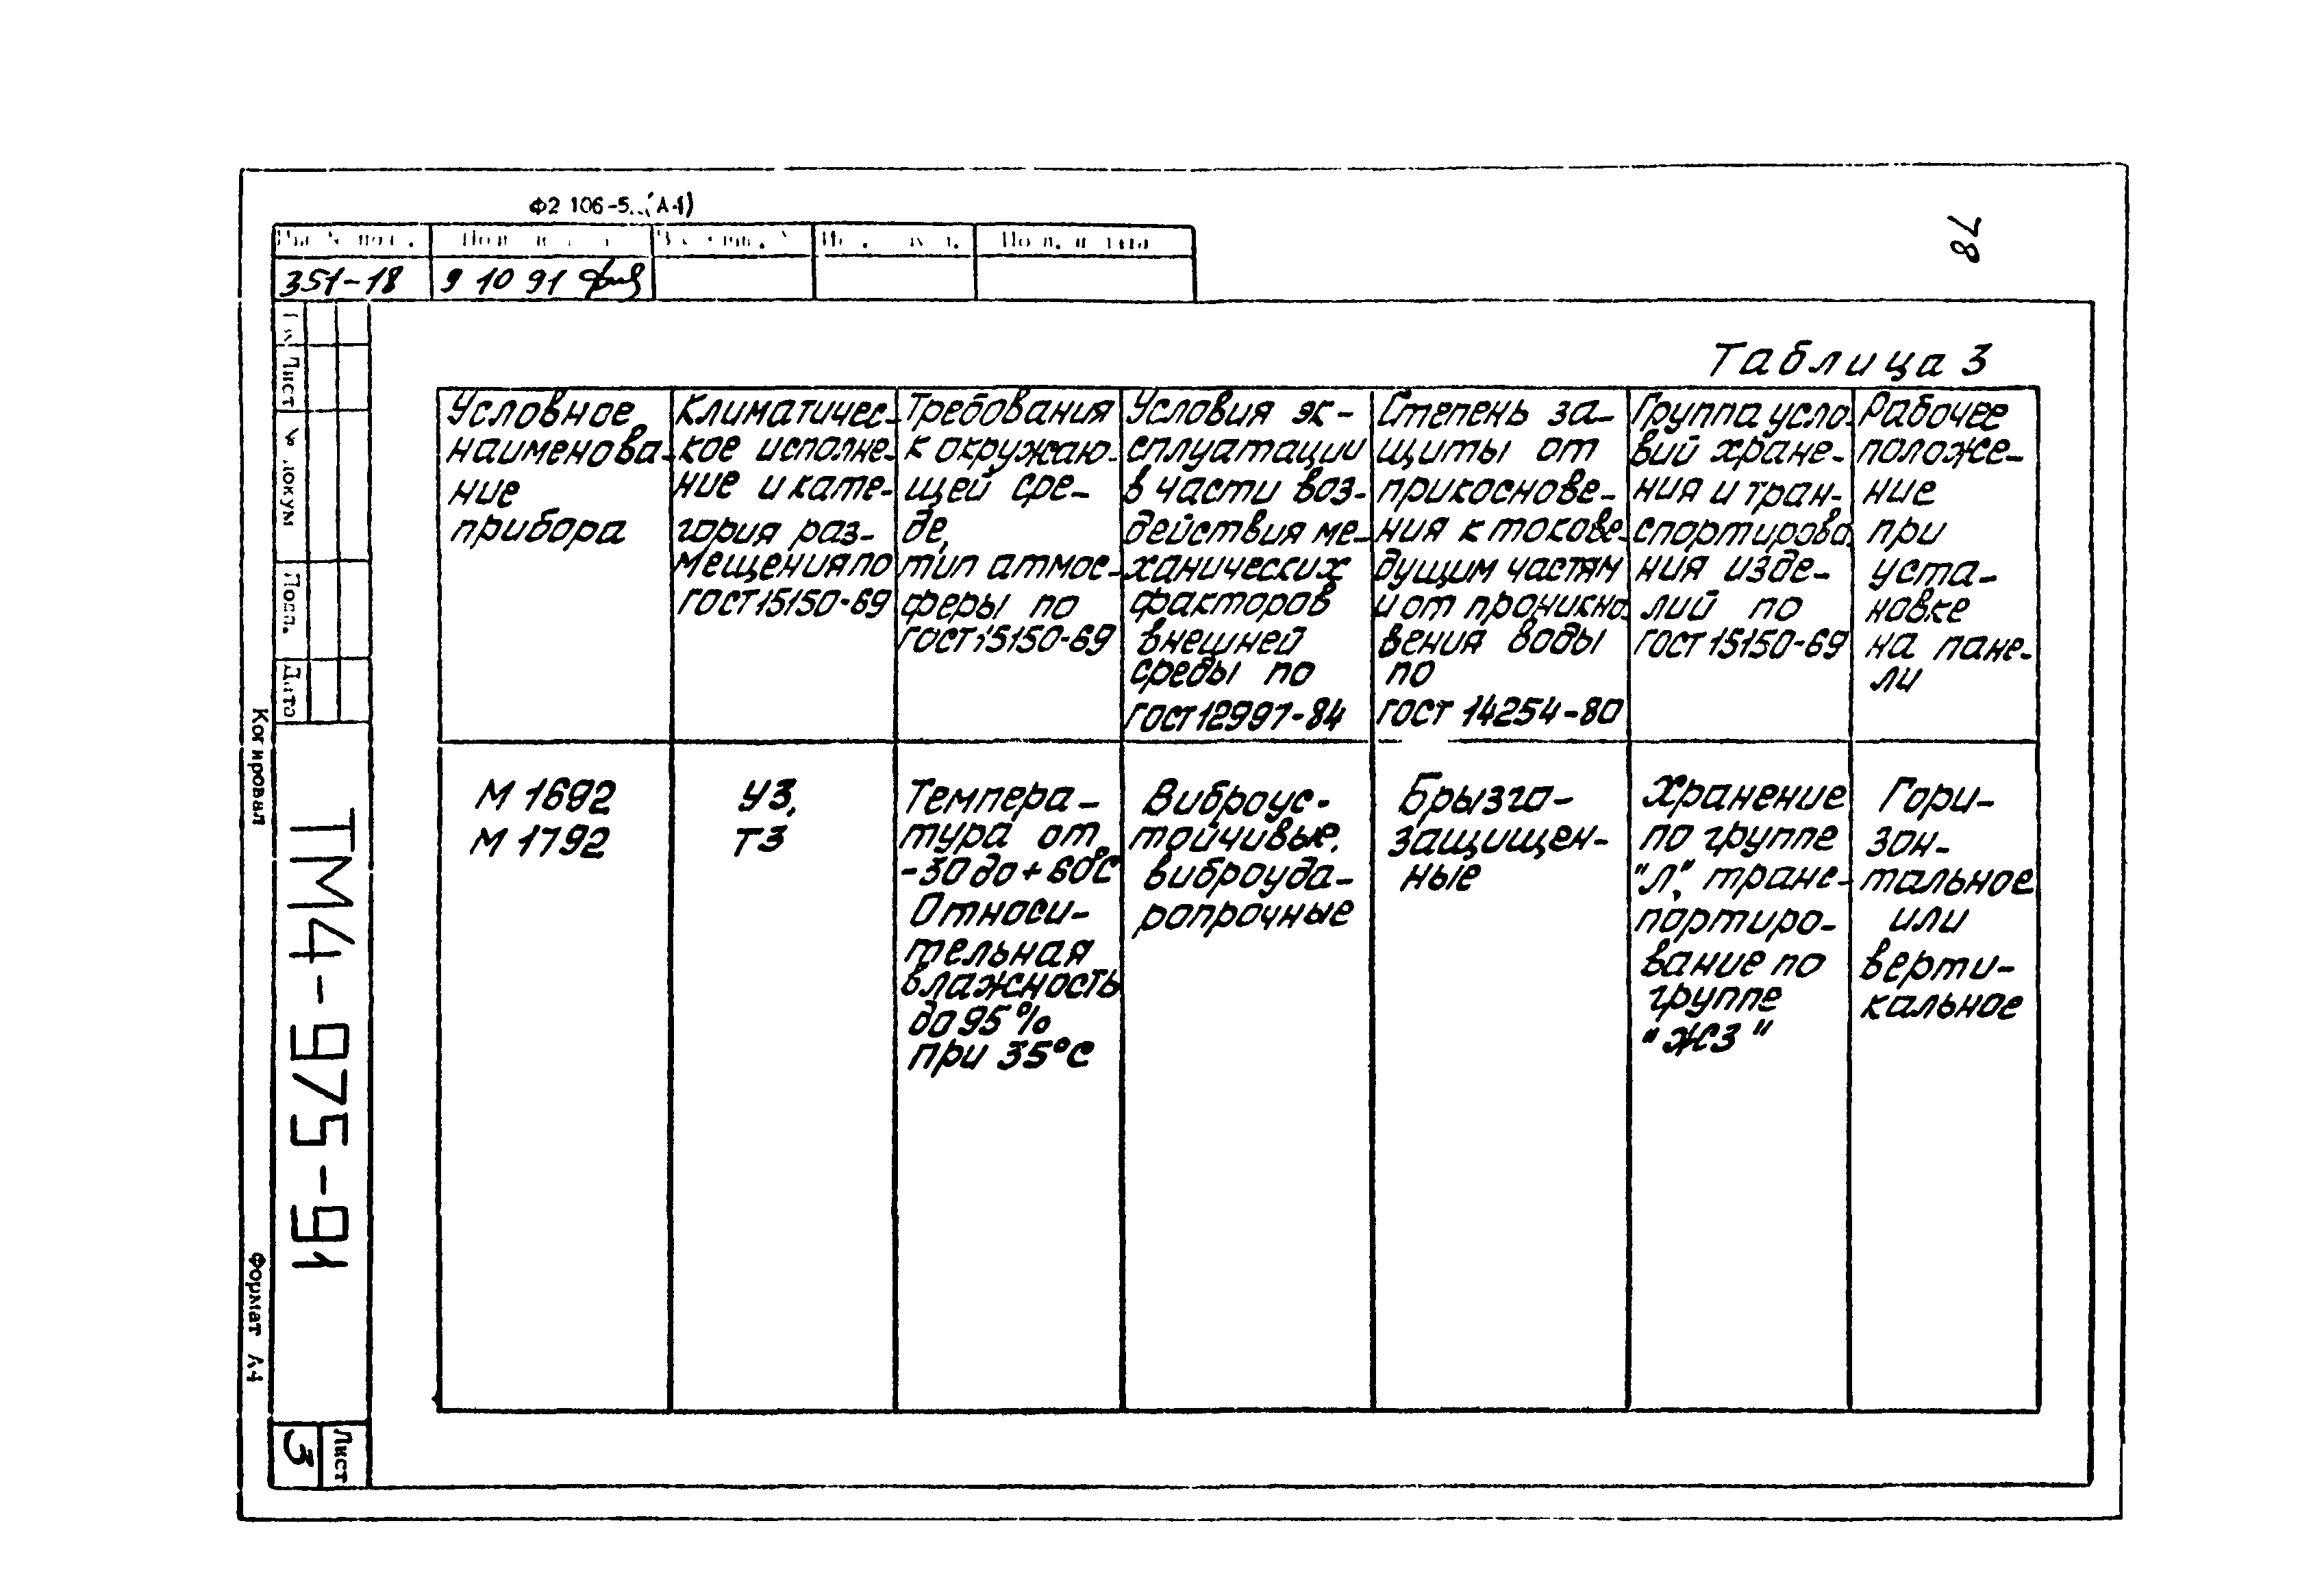 Ф2 106-5..(А4)
351-18
9 10 91
78
Таблица 3
Условное
наименова-
ние
прибора
Климатичес-
кое исполне-
ние и кате-
гория раз-
мещения по
ГОСТ 15150-69
Требования
к окружаю-
щей сре-
де,
тип атмос-
феры по
ГОСТ 15150-69
Условия эк-
сплуатации
в части воз-
действия ме-
ханических
факторов
внешней
среды по
ГОСТ 12997-84
Степень за-
щиты от
прикоснове-
ния к токове-
дущим частям
и от проникно-
вения воды
по
ГОСТ 14254-80
Группа усло-
вий хране-
ния и тран-
спортирова-
ния изде-
лий по
ГОСТ 15150-69
Рабочее
положе-
ние
при
уста-
новке
на пане-
ли
М 1692
М 1792
У3,
Т3
Темпера-
тура от
-30 до +60°С
Относи-
тельная
влажность
до 95 %
при 35°С
Виброус-
тойчивые,
виброуда-
ропрочные
Брызго-
защищен-
ные
Хранение
по группе
"Л", транс-
портиро-
вание по
группе
"Ж3"
Гори-
зон-
тальное
или
верти-
кальное
Лист
докум
Подп.
Дата
Копировал
ТМ4-975-91
Формат А4
Лист
3